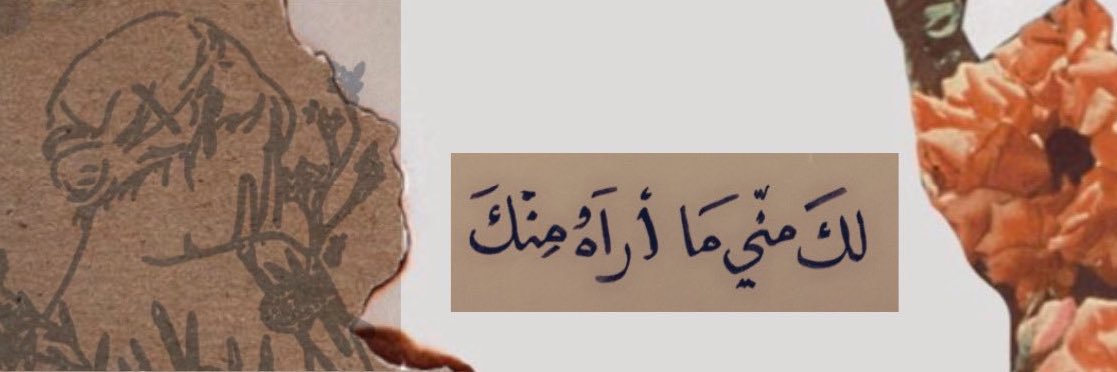 لكَ منّي مَا أراَهُ مِنْكَ